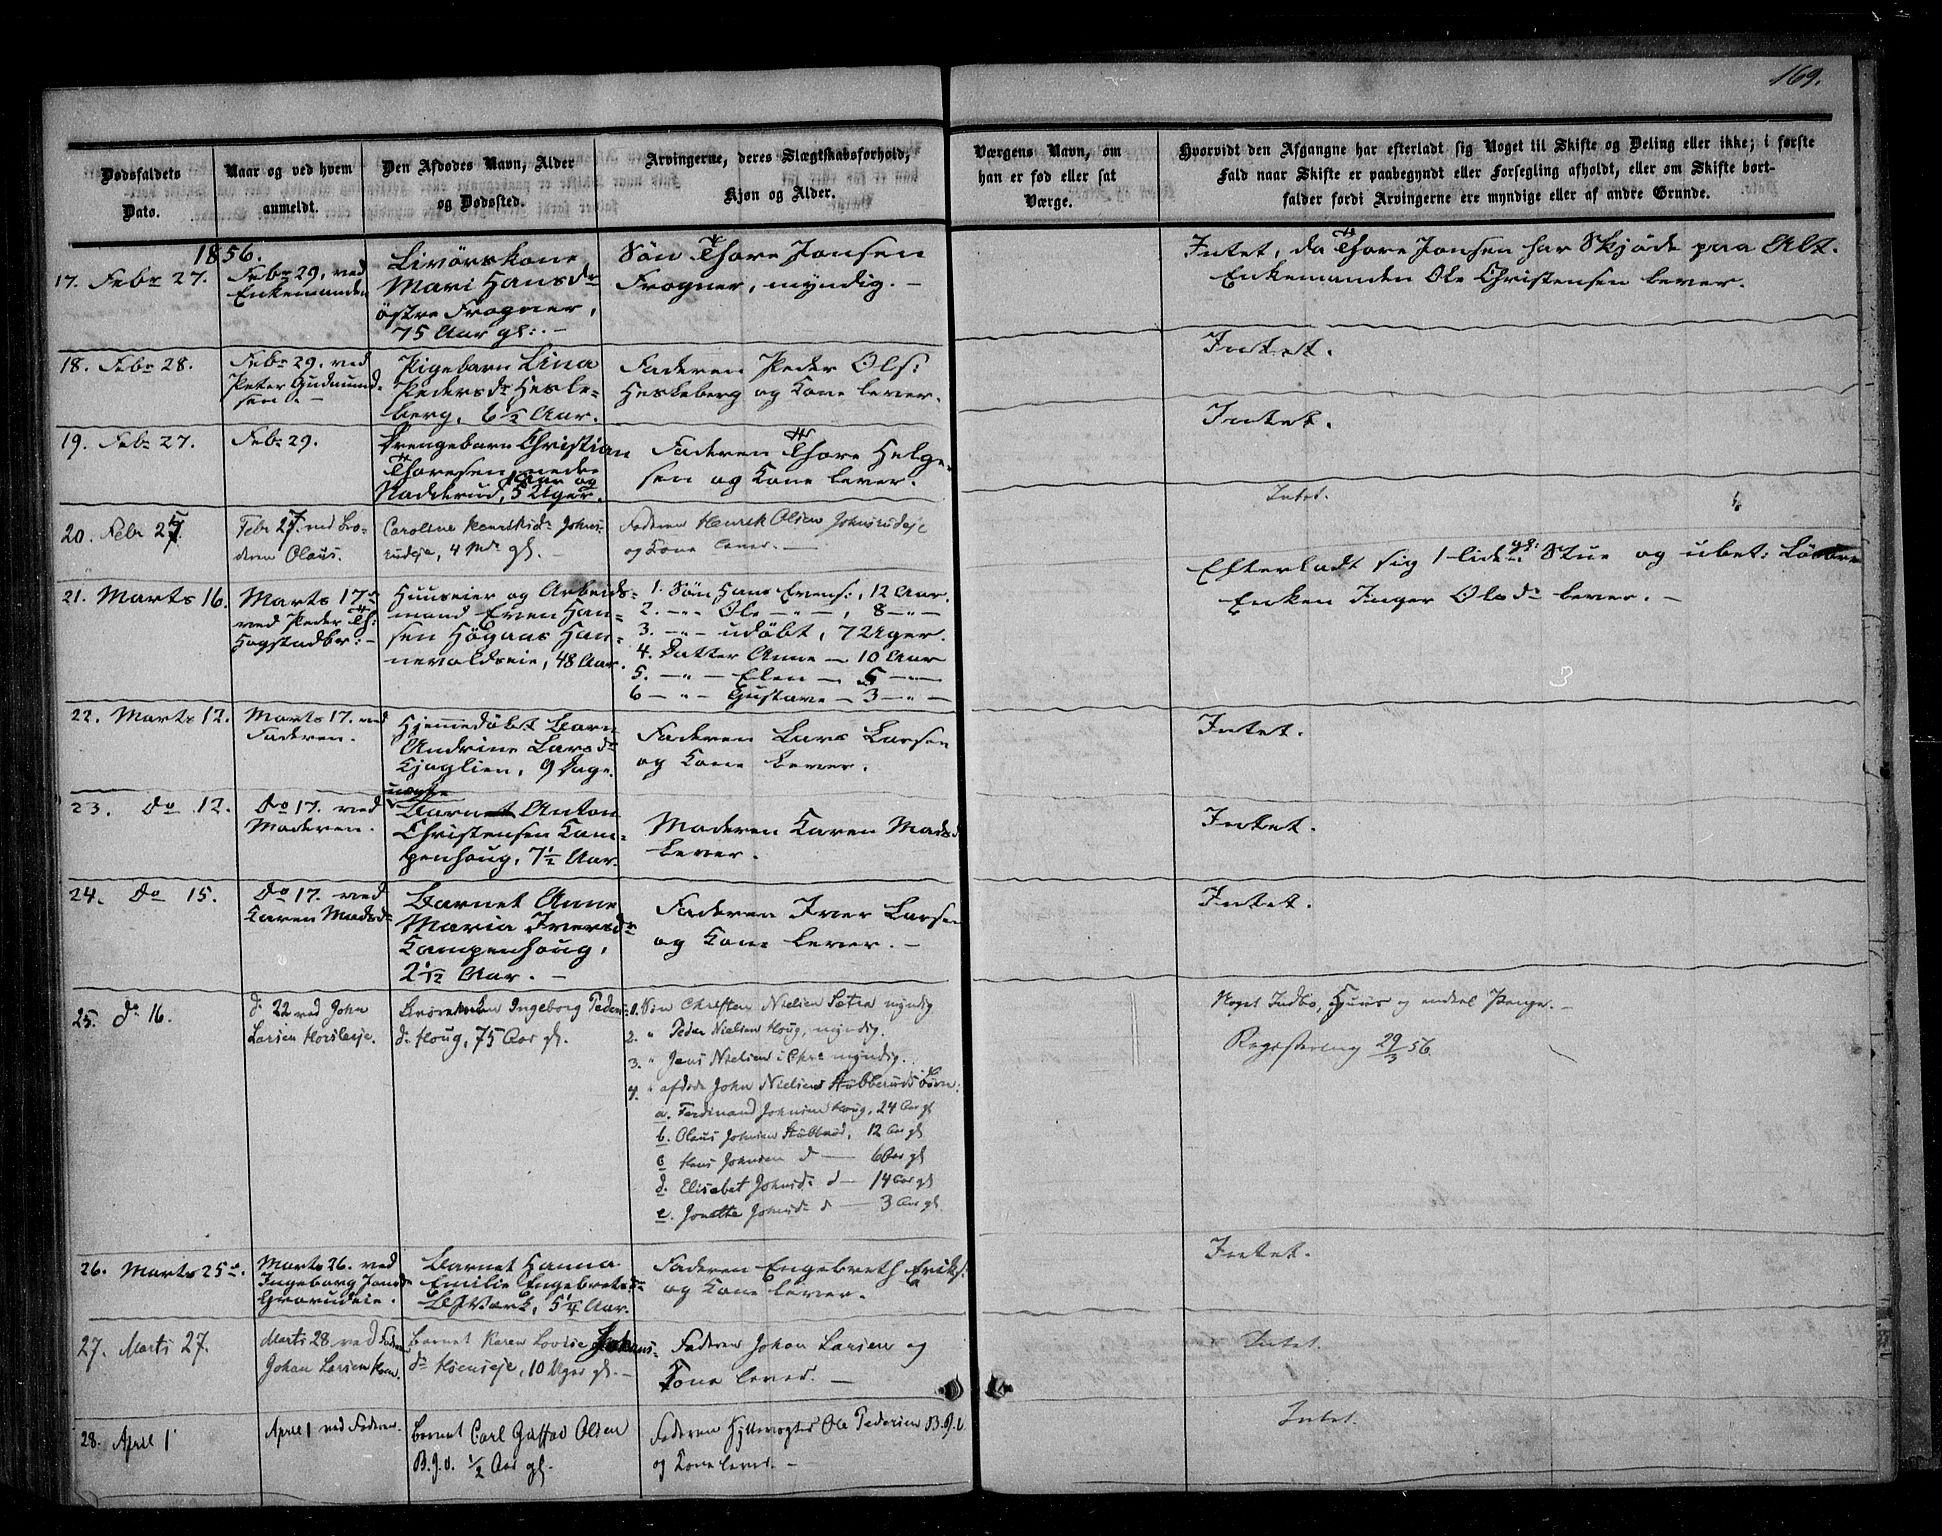 169.
Dødsfaldets Dato.
Naar og ved hvem anmeldt.
Den Afdødes Navn, Alder og Dødsted.
Arvingerne, deres Slægtskabsforhold, Kjøn og Alder.
Værgens Navn, om han er fød eller sat Værge.
Hvorvidt den Afgangne har efterladt sig Noget til Skifte og Deling eller ikke; i første
Fald naar Skifte er paabegyndt eller Forsegling afholdt, eller om Skifte bort-
falder fordi Arvingerne ere myndige eller af andre Grunde.
1856.
17. Febr 27.
Febr 29, ved
Enkemanden
Livørskone
Mari Hansdr
østre Frogner,
75 Aar gl:. —
Søn Thore Jonsen
Frogner, myndig. —
Intet, da Thore Jonsen har Skjøde paa Alt.
Enkemanden Ole Christensen lever.
18. Febr 28.
Febr 29. ved
Peter Gudmund-
sen. —
Pigebarn Lina
Pedersdr Hesle-
berg, 6½ Aar.
Faderen Peder Ols:
Heskeberg og Kone lever.
Intet.
19. Febr 27.
Febr 29.
Drengebarn Christian
Thoresen nedre
Nadderud, 1 Aar og
5 Uger.
Faderen Thore Helge-
sen og Kone lever.
Intet.
20. Febr 27
Febr 27 ved Bro-
deren Olaus.
Caroline Henriksdr Johns-
rudeje, 4 Mdr gl. —
Faderen Henrik Olsen Johnsrudeje
og Kone lever. —
Intet.
21. Marts 16.
Marts 17de
ved Peder Th:
Hogstadbr: —
Huuseier og Arbeids-
mand Even Han-
sen Högaas Han-
nevoldseie, 48 Aar.
1. Søn Hans Evens:, 12 Aar.
2. —"— Ole —"—, 8 —"—
3. —"— udöbt, 7 Uger.
4. Datter Anne — 10 Aar
5. —"— Elen — 5 —"—
6 —"— Gustava — 3 —"—
Efterladt sig 1 liden gl: Stue og ubet: Lösøre
Enken Inger Olsdr lever. —
22. Marts 12.
Marts 17. ved
Faderen.
Hjemmedöbt Barn
Andrine Larsdr
Kjaglien, 9 Dage.
Faderen Lars Larsen
og Kone lever.
Intet.
23. Do 12.
Do 17. ved
Moderen.
uægte
Barnet Anton
Christensen Kam-
penhoug, 7½ Aar.
Moderen Karen Madsd
lever.
Intet.
24. Do 15.
Do 17. ved
Karen Madsdr
Barnet Anne
Maria Iversdr
Kampenhoug,
2 1/12 Aar. —
Faderen Iver Larsen
og Kone lever. —
Intet.
25. do 16.
do 22 ved John
Larsen Horsleje.
Ingeborg Peders-
dr Houg, 75 Aar gl.
1. Søn Christen Nielsen Sætra myndig
2. " Peder Nielsen Houg, myndig.
3. " Jens Nielsen i Chra myndig.
4. " afdøde John Nielsens Stubberuds Børn:
a. Ferdinand Johnsen Houg, 24 Aar gl
b. Olaus Johnsen Stubberud, 12 Aar gl
c Hans Johnsen d — 6 Aar gl
d. Elisabet Johnsdr d — 14 Aar gl
e. Jonetta Johnsdr d — 3 Aar gl.
Noget Indbo, Huus og endeel Penge. —
Registrering 29/3 56.
26. Marts 25de
Marts 26. ved
Ingeborg Jansdr
Grorudeie.
Barnet Hanna
Emilie Engebretsdr
Bsværk, 5¼ Aar.
Faderen Engebreth Eriks:
og Kone lever.
Intet.
27. Marts 27.
Marts 28 ved Faderen
Johan Larsen
Barnet Karen Lovise Johans-
dr, 10 Uger gl. —
Faderen Johan Larsen og
Kone lever. —
Intet.
28. April 1
April 1 ved Faderen.
Barnet Carl Gustav Olsen
B.J.V. ½ Aar gl.
Faderen Hyttevogter Ole Pedersen B.J.V
og Kone lever. —
Intet.